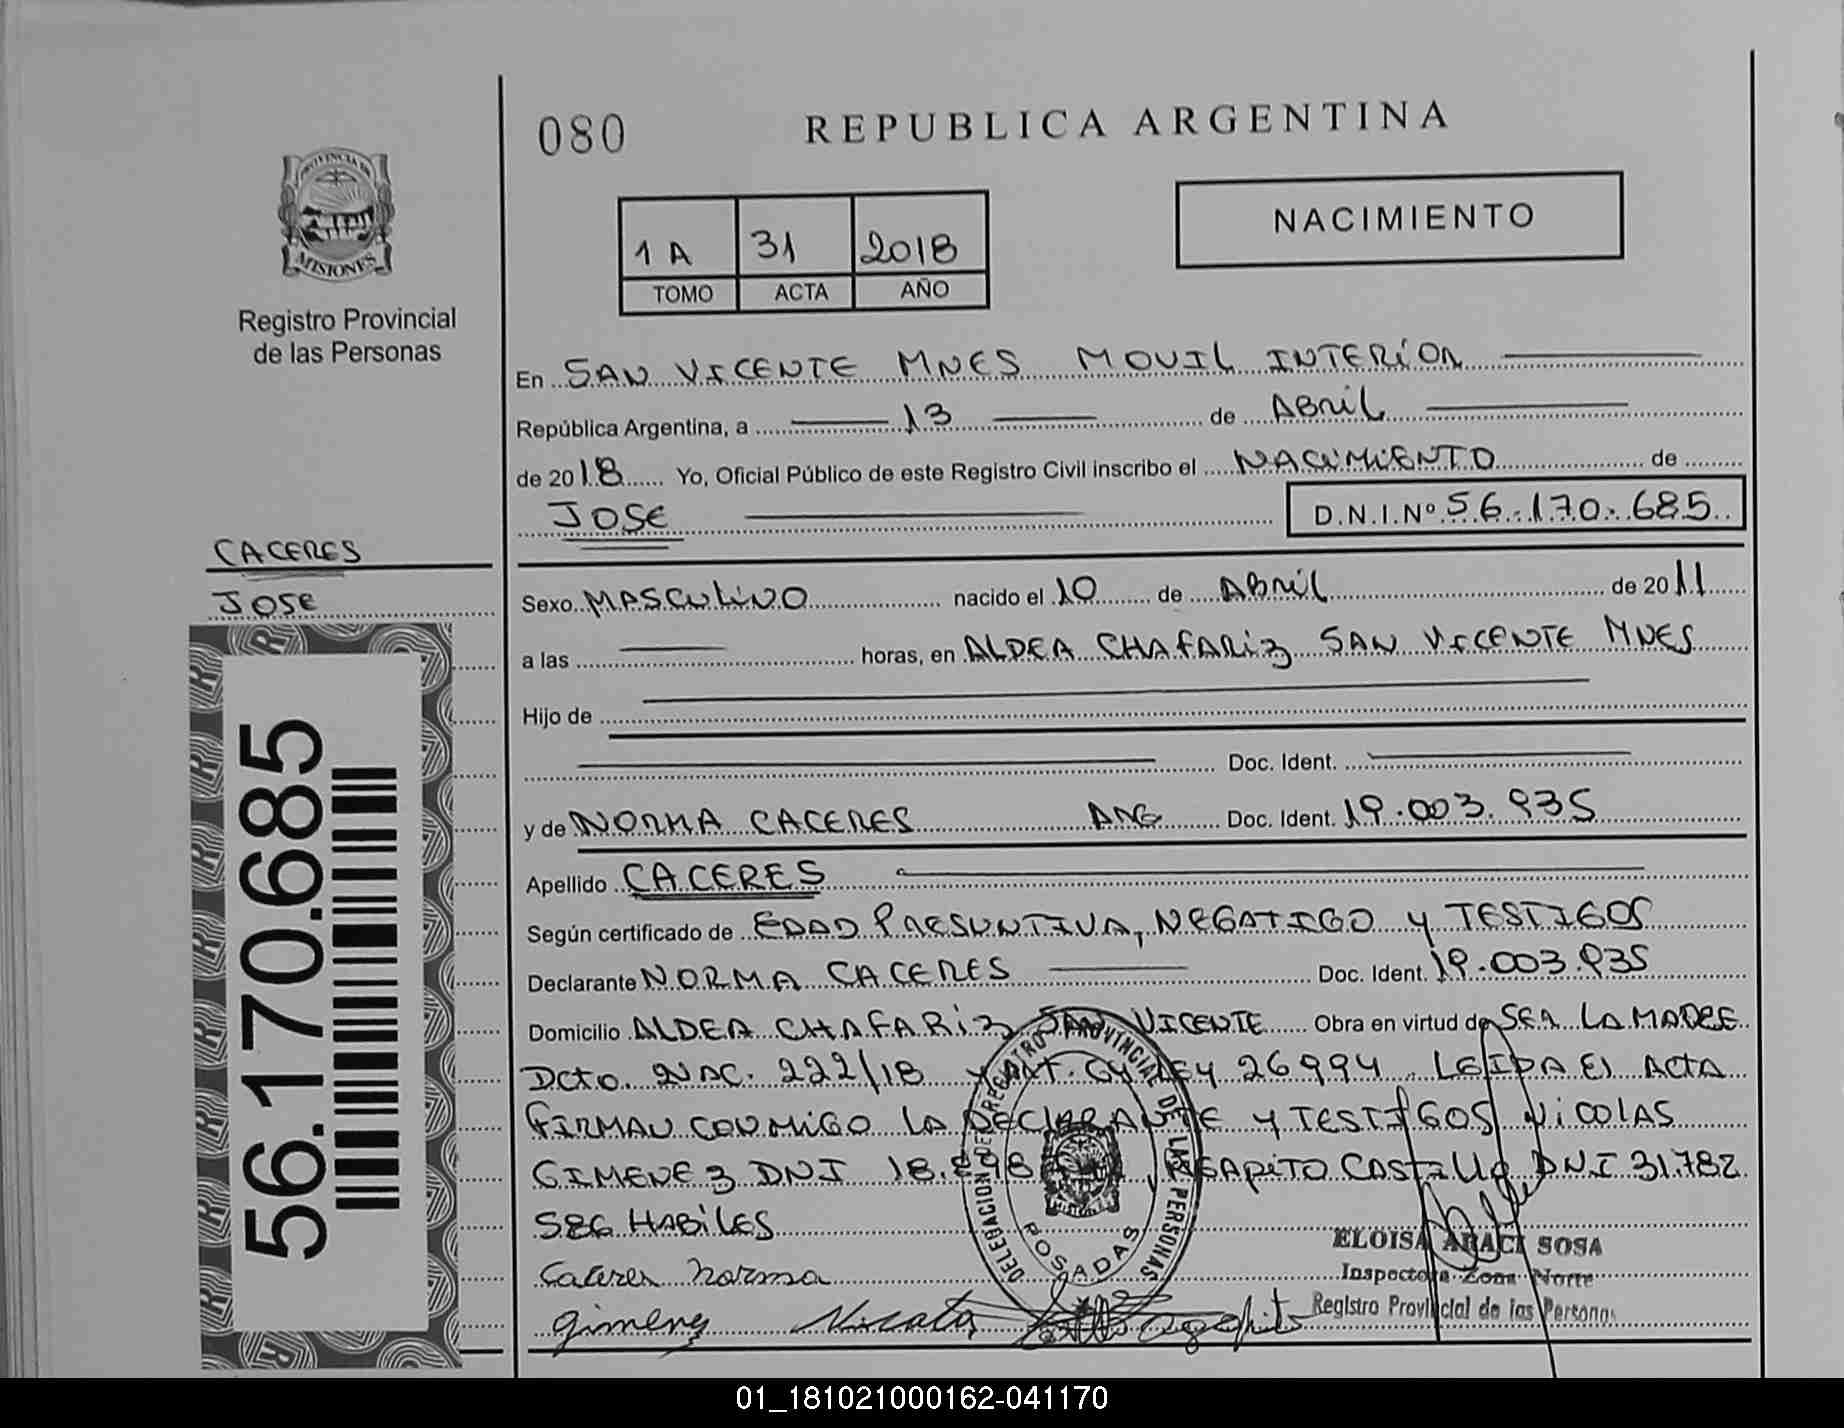 080
REPUBLICA ARGENTINA
PROVINCIA DE
MISIONES
Registro Provincial
de las Personas
NACIMIENTO
1A 31 2018
TOMO ACTA AÑO
En SAN VICENTE MNES MOVIL INTERIOR
República Argentina, a 13 de ABRIL
de 2018 Yo, Oficial Público de este Registro Civil inscribo el NACIMIENTO de
JOSE D.N.I.Nº 56.170.685
CACERES
JOSE
Sexo MASCULINO nacido el 10 de ABRIL de 2011
a las horas, en ALDEA CHAFARIZ SAN VICENTE MNES
Hijo de
Doc. Ident.
y de NORMA CACERES ARG Doc. Ident. 19.003.935
Apellido CACERES
Según certificado de EDAD PRESUNTIVA, NEGATIGO Y TESTIGOS
Declarante NORMA CACERES Doc. Ident. 19.003.935
Domicilio ALDEA CHAFARIZ SAN VICENTE Obra en virtud de SER LA MADRE
Dcto. NAC. 222/18 Y ART. LEY 26994 LEIDA El ACTA
FIRMAN CONMIGO LA DECLARANTE Y TESTIGOS NICOLAS
GIMENEZ DNI AGAPITO CASTILLO DNI 31.782.
586 HABILES
Caceres Norma
Gimenez Nicolas Agapito
DELEGACION DE REGISTRO PROVINCIAL DE LAS PERSONAS
POSADAS
ELOISA ARACI SOSA
Inspectora Zona Norte
Registro Provincial de las Personas
56.170.685
01_181021000162-041170